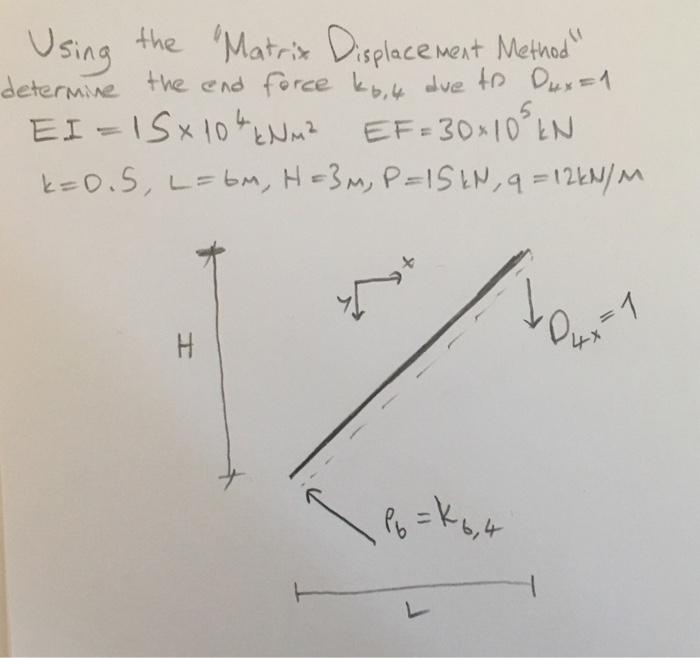 Using the "Matrix Displacement Method"
determine the end force k6,4 due to D4x=1
EI = 15 x 10⁴ kNm² EF = 30x10⁵ kN
k=0.5, L=6m, H=3m, P=15kN, q=12kN/m
x
y
H
D4x=1
P6 = k6,4
L